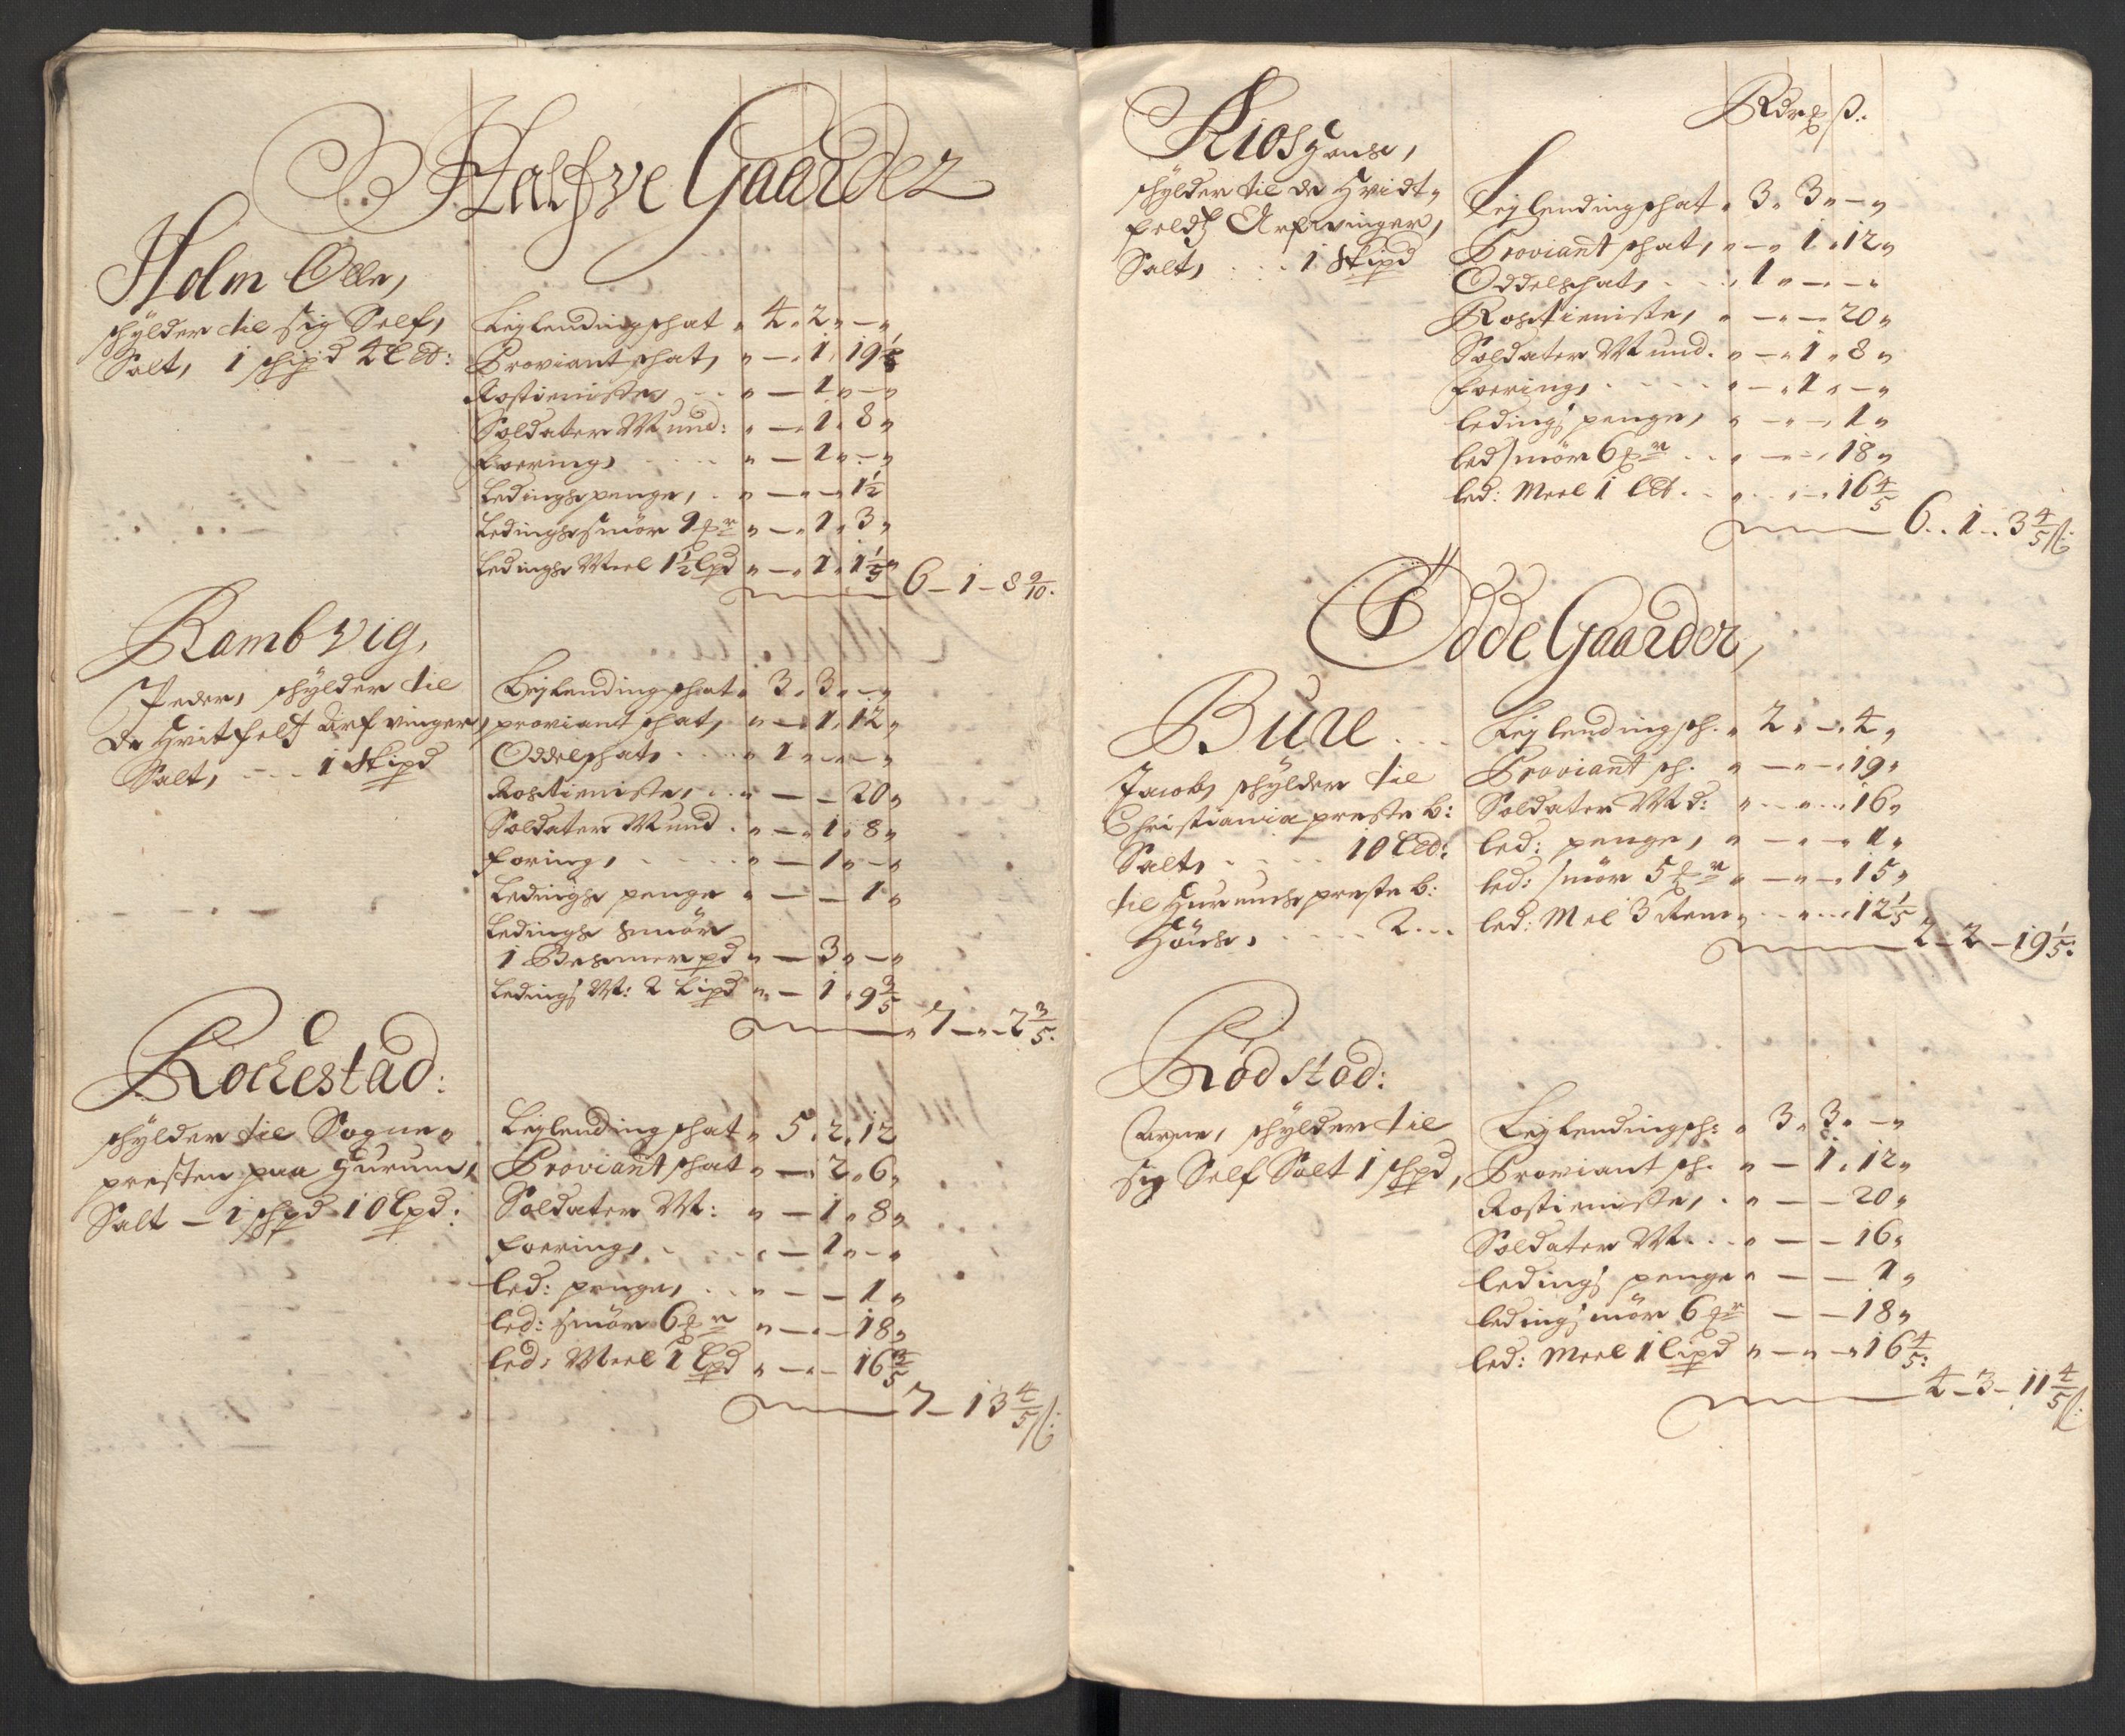 Halfve Gaarder
Holm Olle,
schylder til sig Self,
Salt, 1 schipd 4 L℔:
Leylendingschat „ 4 „ 2 „ — „
Proviantschat, „ — „ 1 „ 19 1/5
Rostieniste, „ — 1 „ — „
Soldater Mund: „ — „ 1 „ 8 „
Foering, „ — 1 „ — „
Ledingspenge, „ — „ — 1 1/2
Ledingssmör 9 „ — „ 1 „ 3 „
Ledings Meel 1 1/2 Lpd „ — „ 1 „ 1 1/5
6 – 1 – 8 9/10.
Rambvig,
Peder, schylder til
De Hvitfelds Arfvinger,
Salt, 1 Skipd
Leylendingschat „ 3 „ 3 „ — „
proviant schat, „ — 1 „ 12 „
Oddelschat, „ 1 „ — „ — „
Rostieniste, „ — — 20 „
Soldater Mund „ — „ 1 „ 8 „
foring, „ — 1 „ — „
Ledings penge „ — — 1 „
Ledings smör
1 Besmerpd „ — 3 „ — „
Ledings M: 2 Lipd „ — 1 „ 9 3/5
„ 7 — „ — 2 3/5.
Rockestad:
schylder til Sogne„
presten paa Hurum,
Salt – 1 schpd 10 Lpd:
Leylending schat „ 5 „ 2 „ 12
Proviant schat „ — „ 2 „ 6 „
Soldater M: „ — 1 „ 8 „
Foering, „ — 1 „ — „
led: penge, „ — — 1 „
led: smör 6 „ — „ — 18 „
led: Meel 1 Lpd „ — „ — 16 4/5
7 – 13 4/5 ß:
Rdr ß:
Kios
schylder til de Hvidt„
feldz Arfvinger,
Salt, 1 Skipd
Leylendingschat „ 3 „ 3 „ — „
Proviant schat, „ — „ 1 „ 12 „
Oddelschat, „ 1 „ — „ — „
Rostieniste, „ — „ — 20 „
Soldater Mund. „ — „ 1 „ 8 „
foering, „ — „ 1 „ — „
leding penge, „ — „ — „ 1 „
led smör 6 „ — „ — „ 18 „
led: Meel 1 L℔ „ — „ — „ 16 4/5
6 „ 1 „ 3 4/5 ß:
Ödde Gaarder,
Bure
Jacob, schylder til
Christiania preste b:
Salt, 10 L℔:
til Hurums preste b:
Hönse, 2
Leylendingsch. „ 2 „ — „ 4 „
Proviant sch. „ — „ — „ 19 „
Soldater Md: „ — „ — „ 16 „
led: penge, „ — „ — „ 1 „
led: smör 5 „ — „ — „ 15 „
led: Mel 3 „ — „ — „ 12 1/5
2 – 2 – 19 1/5:
Rödstad:
Arne, schylder til
sig Self Salt 1 schpd,
Leylendingsch: „ 3 „ 3 „ — „
Proviant sch. „ — 1 „ 12 „
Rostieniste, „ — — 20 „
Soldater M. „ — — 16 „
leding penge „ — — 1 „
leding smör 6 — — 18 „
led: Meel 1 Lipd „ — „ — „ 16 4/5:
4 – 3 – 11 4/5 ß: